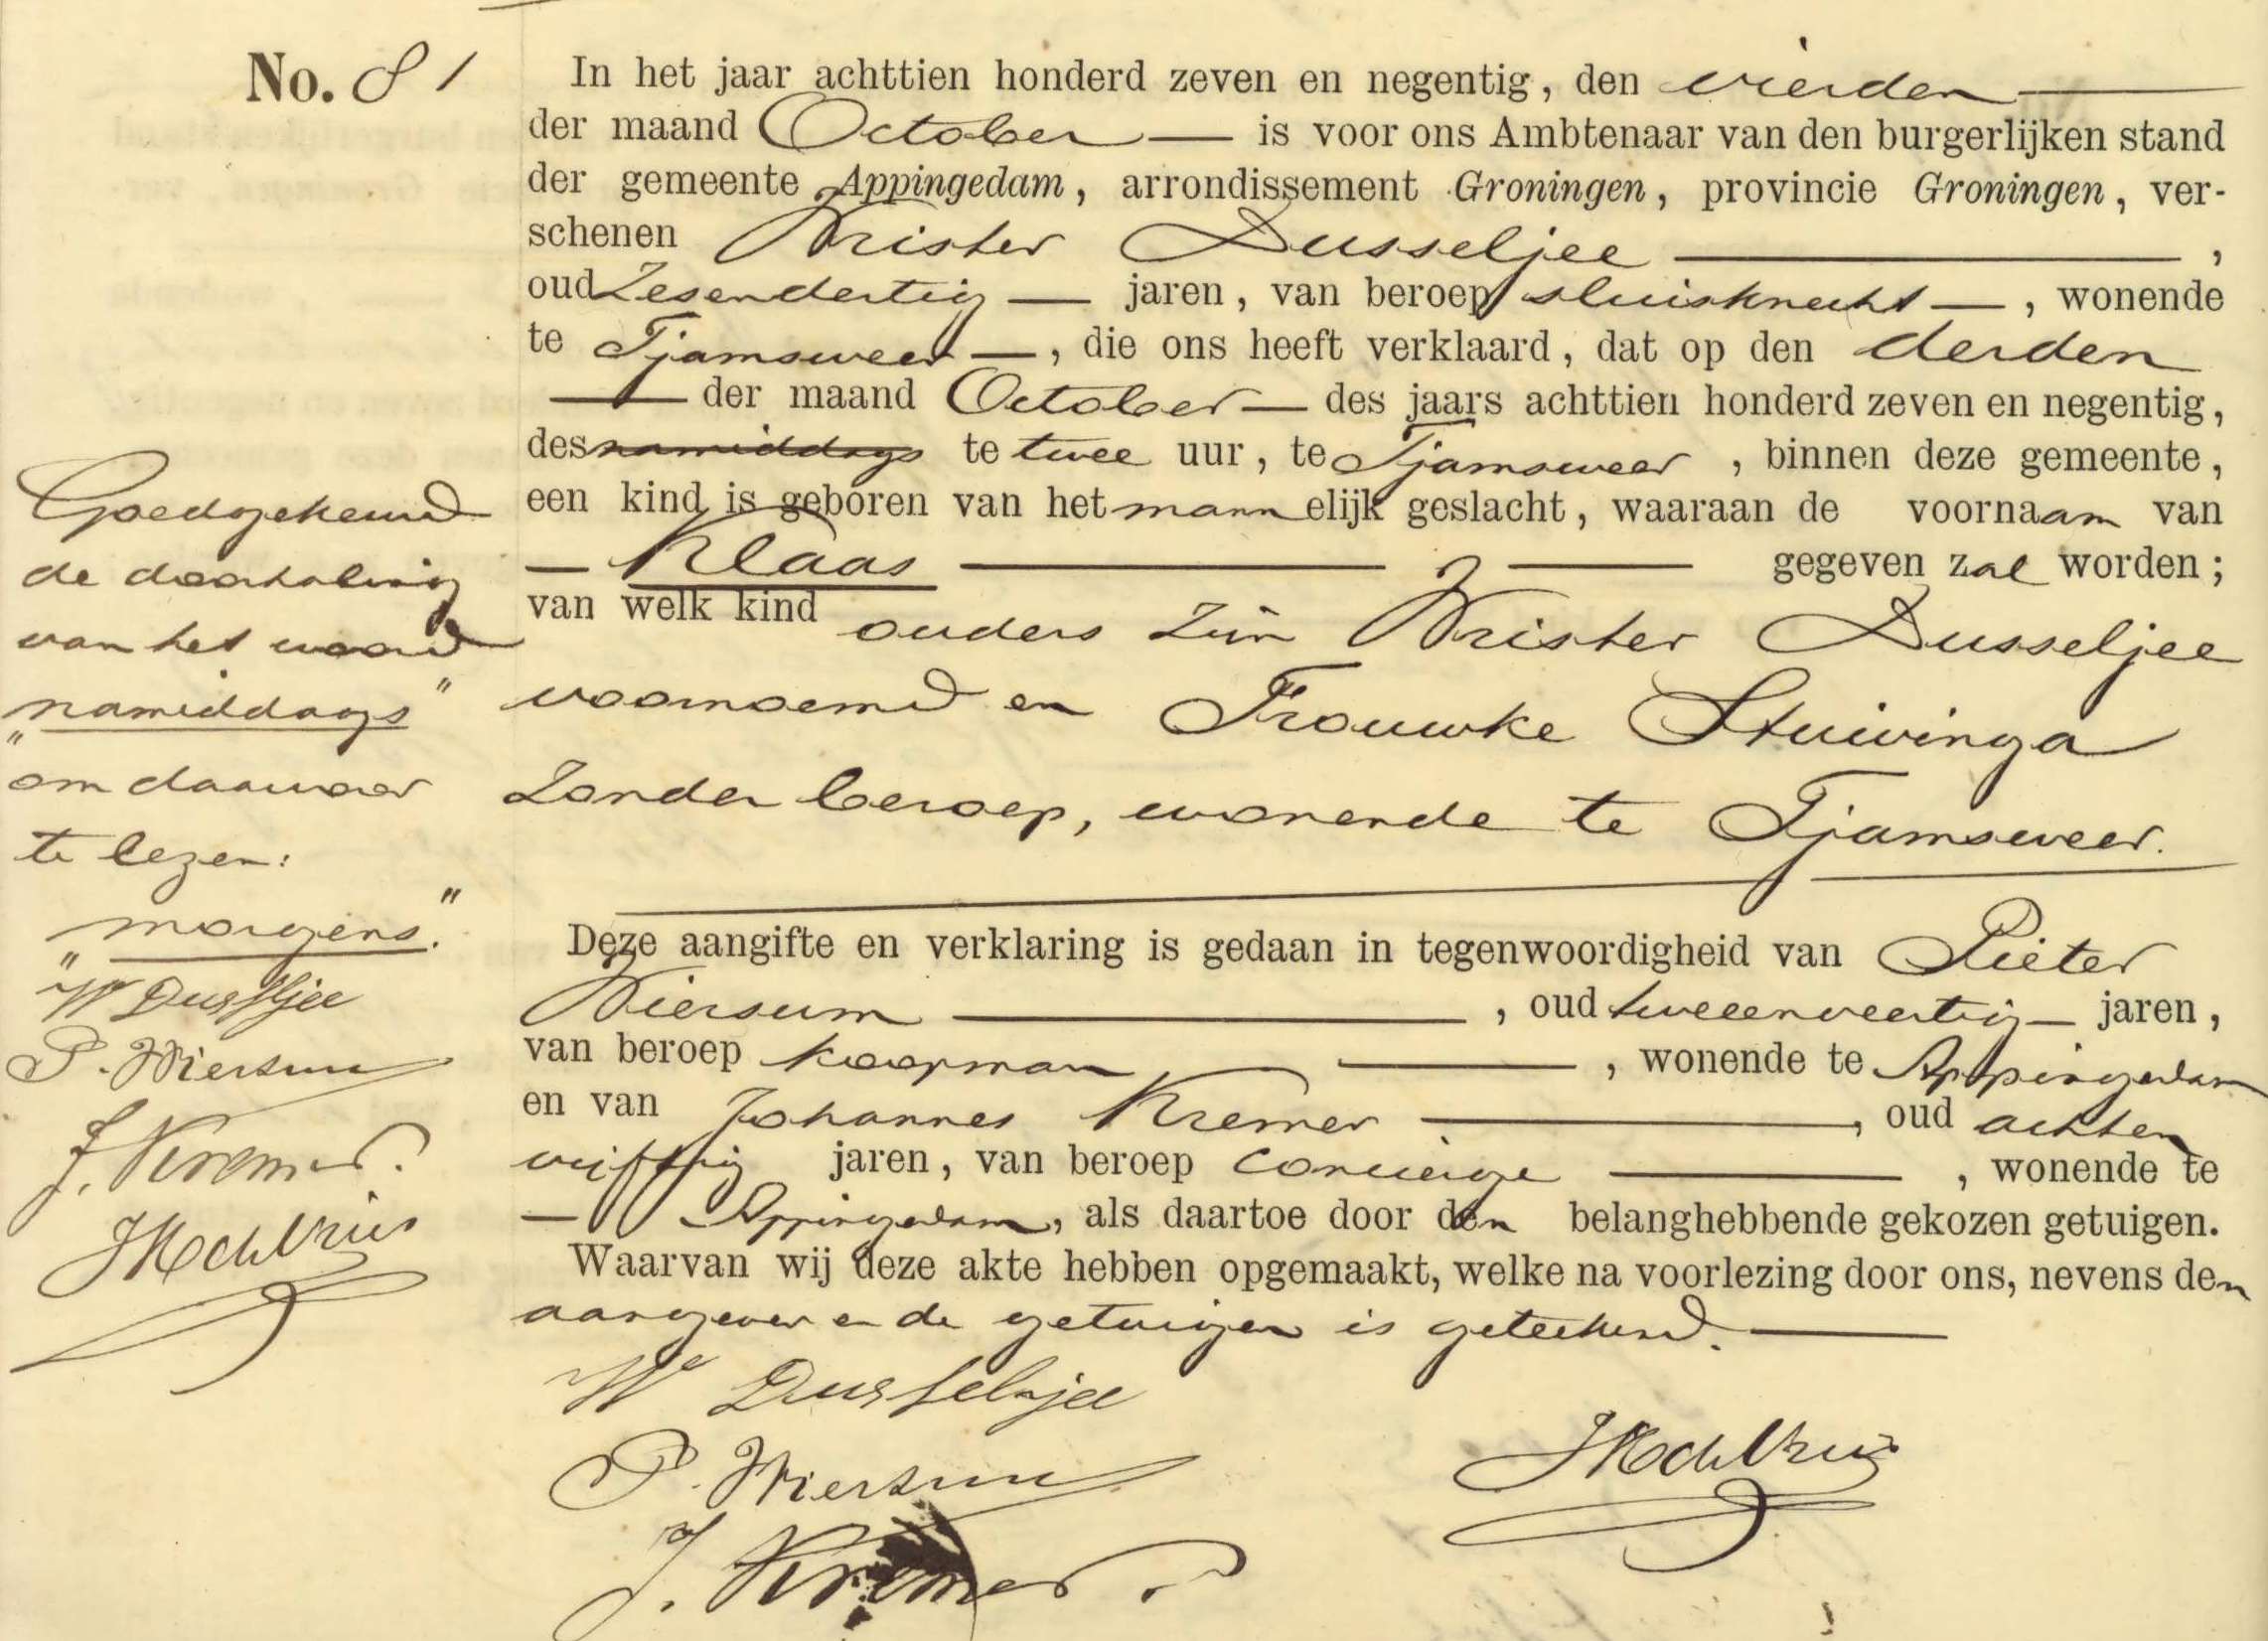 No. 81
In het jaar achttien honderd zeven en negentig, den vierden
der maand October — is voor ons Ambtenaar van den burgerlijken stand
der gemeente Appingedam, arrondissement Groningen, provincie Groningen, ver-
schenen Wrister Dusseljee ,
oud Zesendertig — jaren, van beroep sluisknecht —, wonende
te Tjamsweer —, die ons heeft verklaard, dat op den derden
— der maand October — des jaars achttien honderd zeven en negentig,
des namiddags te twee uur, te Tjamsweer, binnen deze gemeente,
een kind is geboren van het mannelijk geslacht, waaraan de voornaam van
— Klaas — gegeven zal worden;
van welk kind ouders zijn Wrister Dusseljee
voornoemd en Trouwke Stuivinga
Zonder beroep, wonende te Tjamsweer.
Deze aangifte en verklaring is gedaan in tegenwoordigheid van Pieter
Wiersum —, oud tweeenveertig — jaren,
van beroep koopman —, wonende te Appingedam
en van Johannes Kremer —, oud achten
vijftig jaren, van beroep concierge —, wonende te
— Appingedam, als daartoe door den belanghebbende gekozen getuigen.
Waarvan wij deze akte hebben opgemaakt, welke na voorlezing door ons, nevens den
aangever en de getuigen is geteekend. —
W Dusseljee
P. Wiersum
J. Kremer.
Goedgekeurd
de doorhaling
van het woord
"namiddags"
om daarvoor
te lezen:
"morgens."
W Dusseljee
P. Wiersum
J. Kremer.